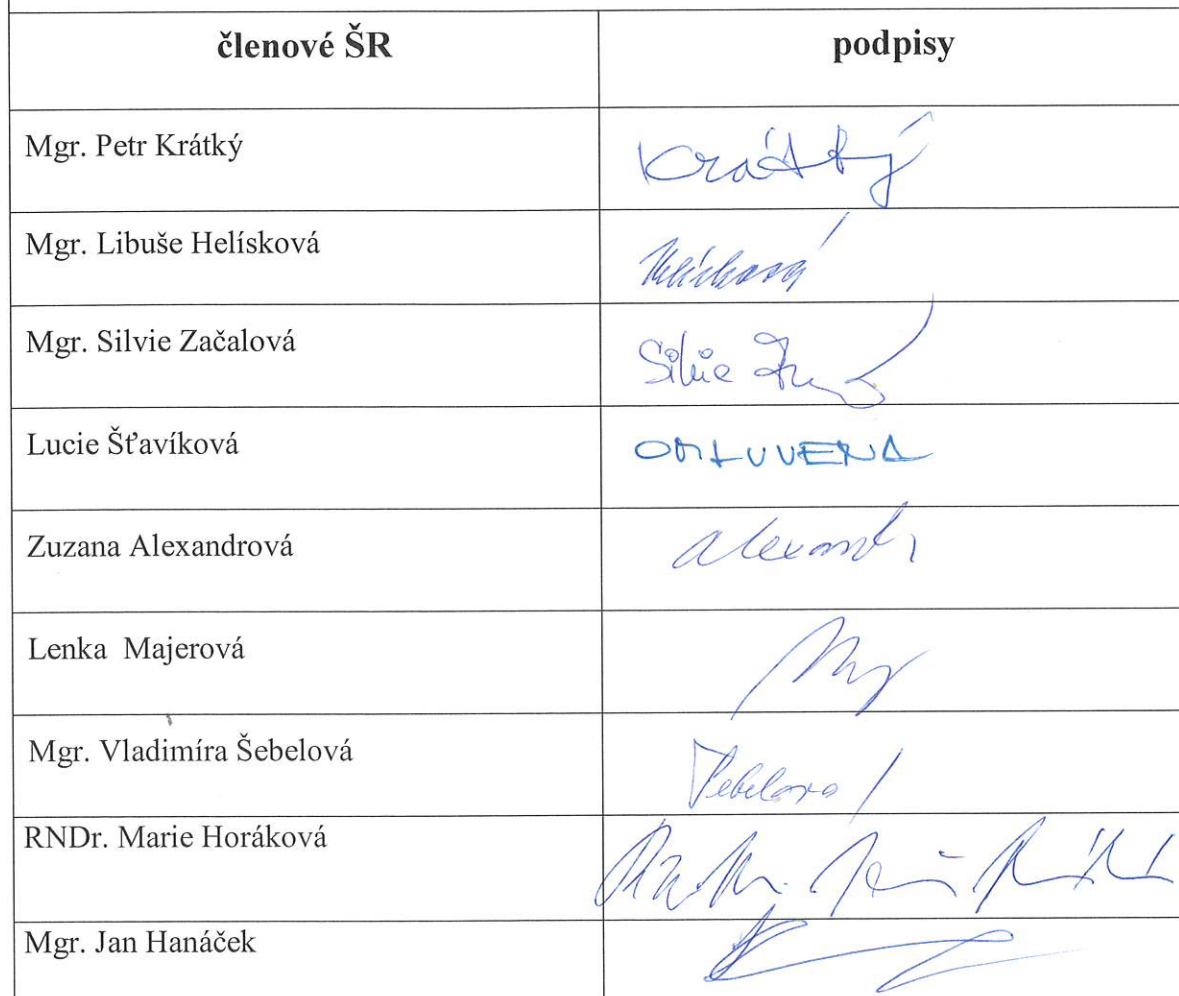 členové ŠR podpisy
Mgr. Petr Krátký Krátký
Mgr. Libuše Helísková Helísková
Mgr. Silvie Začalová Silvie
Lucie Šťavíková OMLUVENA
Zuzana Alexandrová
Lenka Majerová
Mgr. Vladimíra Šebelová Šebelová
RNDr. Marie Horáková
Mgr. Jan Hanáček